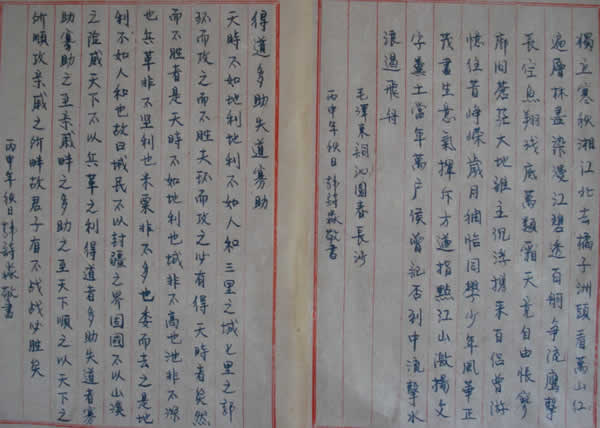 獨立寒秋湘江北去橘子洲頭看萬山紅
遍層林盡染漫江碧透百舸爭流鷹擊
長空魚翔淺底萬類霜天竟自由悵寥
廓問蒼茫大地誰主沉浮攜來百侶曾游
憶往昔崢嶸歲月稠恰同學少年風華正
茂書生意氣揮斥方遒指點江山激揚文
字糞土當年萬户侯曾記否到中流擊水
浪遏飛舟
毛澤東詞沁園春長沙
丙申年秋日韩詩淼敬書
得道多助失道寡助
天時不如地利地利不如人和三里之城七里之郭
环而攻之而不胜夫环而攻之必有得天時者矣然
而不胜者是天時不如地利也城非不高也池非不深
也兵革非不坚利也米粟非不多也委而去之是地
利不如人和也故曰域民不以封疆之界固國不以山溪
之险威天下不以兵革之利得道者多助失道者寡
助寡助之至亲戚畔之多助之至天下順之以天下之
所順攻亲戚之所畔故君子有不战战必胜矣
丙申年秋日韩詩淼敬書